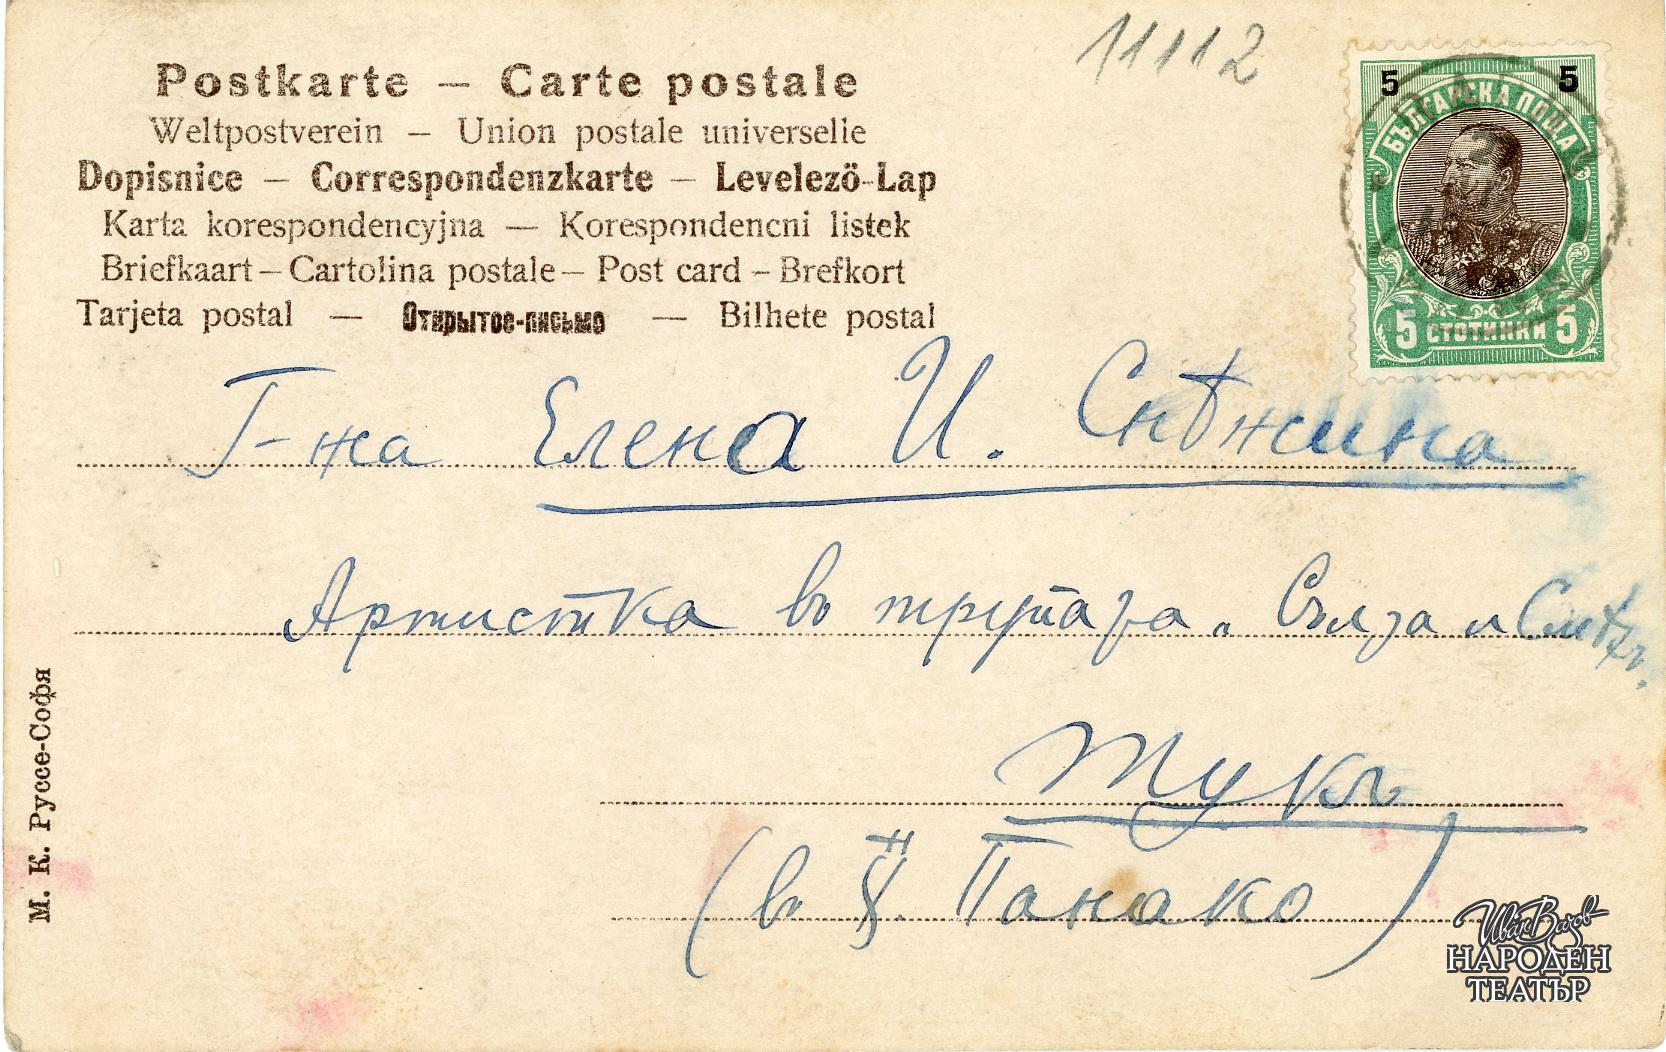 11112
Postkarte – Carte postale
Weltpostverein – Union postale universelle
Dopisnice – Correspondenzkarte – Levelező-Lap
Karta korespondencyjna — Korespondencni listek
Briefkaart – Cartolina postale – Post card – Brefkort
Tarjeta postal — Открытое-письмо — Bilhete postal
5 5
БЪЛГАРСКА ПОЩА
5 СТОТИНКИ 5
Г-жа Елена И. Снѣжина
Артистка въ трупата „Сълза и Смѣхъ"
Тукъ
(въ Х. Панако)
М. К. Руссе-Софя
Иван Вазов
НАРОДЕН
ТЕАТЪР